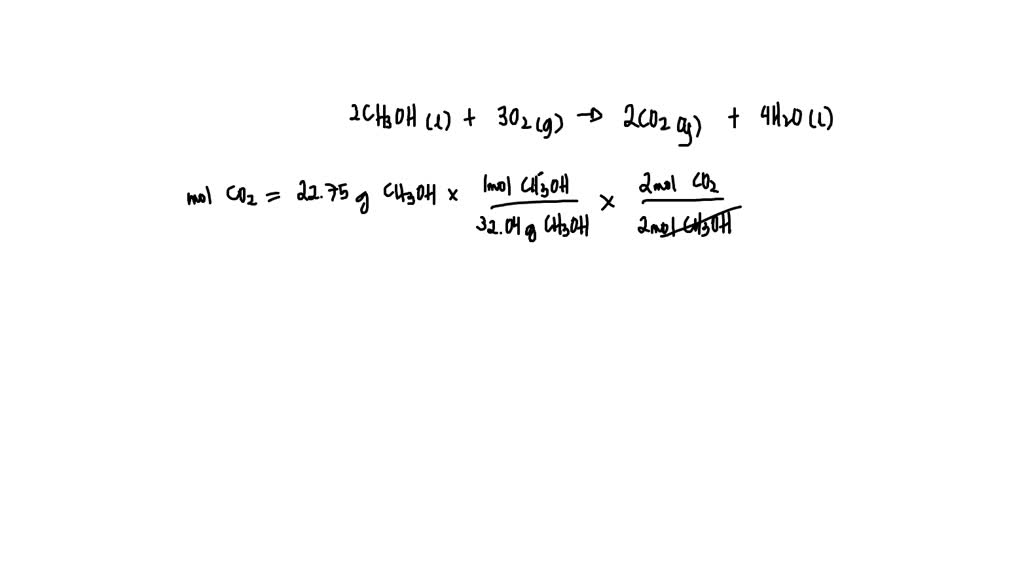 2CH3OH (l) + 3O2 (g) → 2CO2 (g) + 4H2O (l)
mol CO2 = 22.75 g CH3OH × 1mol CH3OH / 32.04 g CH3OH × 2mol CO2 / 2mol CH3OH